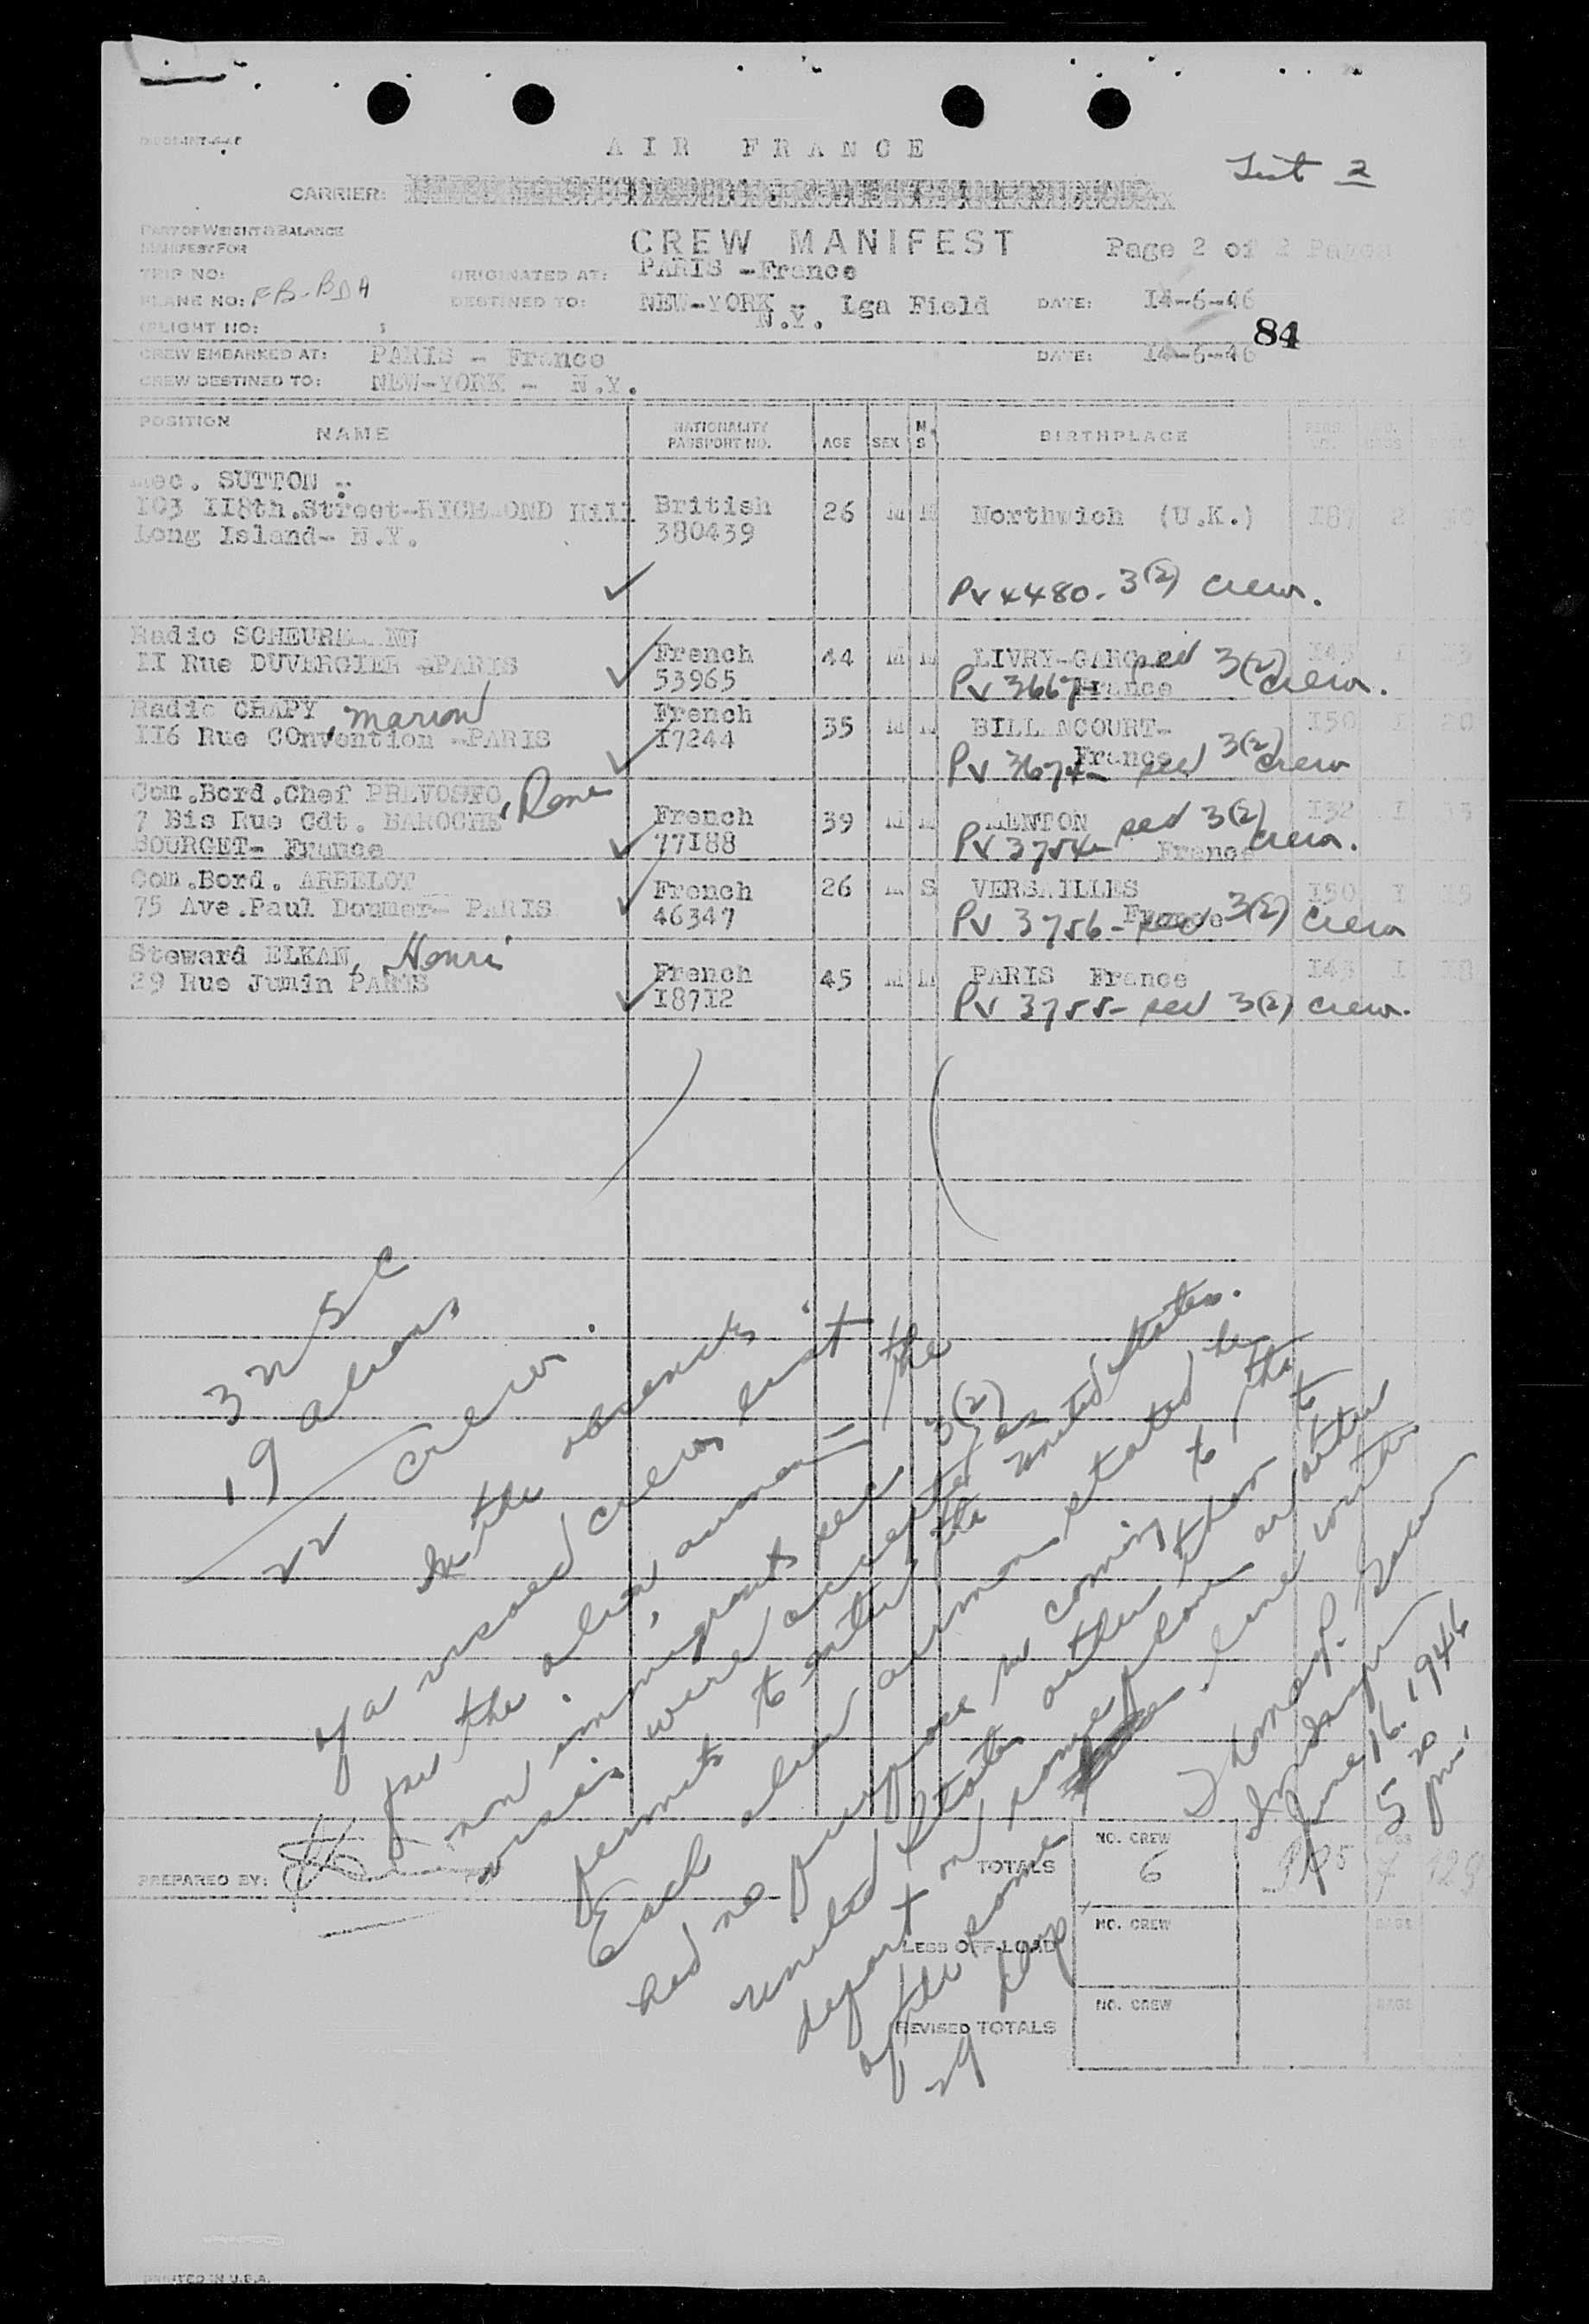 AIR FRANCE
List 2
CARRIER:
PART OF WEIGHT & BALANCE
MANIFEST FOR
CREW MANIFEST
Page 2 of 2 Pages
TRIP NO:
ORIGINATED AT: PARIS -France
PLANE NO: FB-BDA
DESTINED TO: NEW-YORK - Lga Field
N.Y.
DATE: 14-6-46
FLIGHT NO:
84
CREW EMBARKED AT: PARIS - France
DATE: 14-6-46
CREW DESTINED TO: NEW-YORK - N.Y.
POSITION NAME NATIONALITY PASSPORT NO. AGE SEX M. S BIRTHPLACE
Mec. SUTTON -
103 118th.Street-RICHMOND Hill British 26 M M Northwich (U.K.) 187 2
Long Island- N.Y. 380439
Pv 4480 - 3(2) crew.
Radio
11 Rue DUVERGIER -PARIS French 44 M M LIVRY-GARGAN 143 1
53965 France
Pv 3667 sec 3(2) crew.
Radio CHAPY, Marion French 35 M M BILLANCOURT- 150 1 20
116 Rue COnvention -PARIS 17244 France
Pv 3674 - sec 3(2) crew
Com.Bord.Chef PREVOSTO, Rene
7 Bis Rue Cdt. BAROCHE French 39 M M MENTON 132 1 13
BOURGET- France 77188 France
Pv 3754 - sec 3(2) crew.
Com.Bord. ARBELOT French 26 M S VERSAILLES 150 1 15
75 Ave.Paul Doumer- PARIS 46347 France
Pv 3756 - sec 3(2) crew
Steward ELKAN, Henri French 45 M M PARIS France 143 1 18
29 Rue Jumin PARIS 18712
Pv 3755 - sec 3(2) crew.
3 USC
19 aliens
22 crew.
In the absence
of a visaed crew list
for the alien airmen = the
non immigrants sec 3(2)
visas were accepted as
permits to enter the United States.
Each alien airman stated he
had no purpose in coming to the
United States other than to
depart on same plane or another
of the same line within
29 days
Thomas P.
Inspr
June 16, 1946
5 20 pm.
PREPARED BY:
TOTALS NO. CREW 6 BAGS 7 129
LESS OFF-LOAD NO. CREW BAGS
REVISED TOTALS NO. CREW BAGS
PRINTED IN U.S.A.